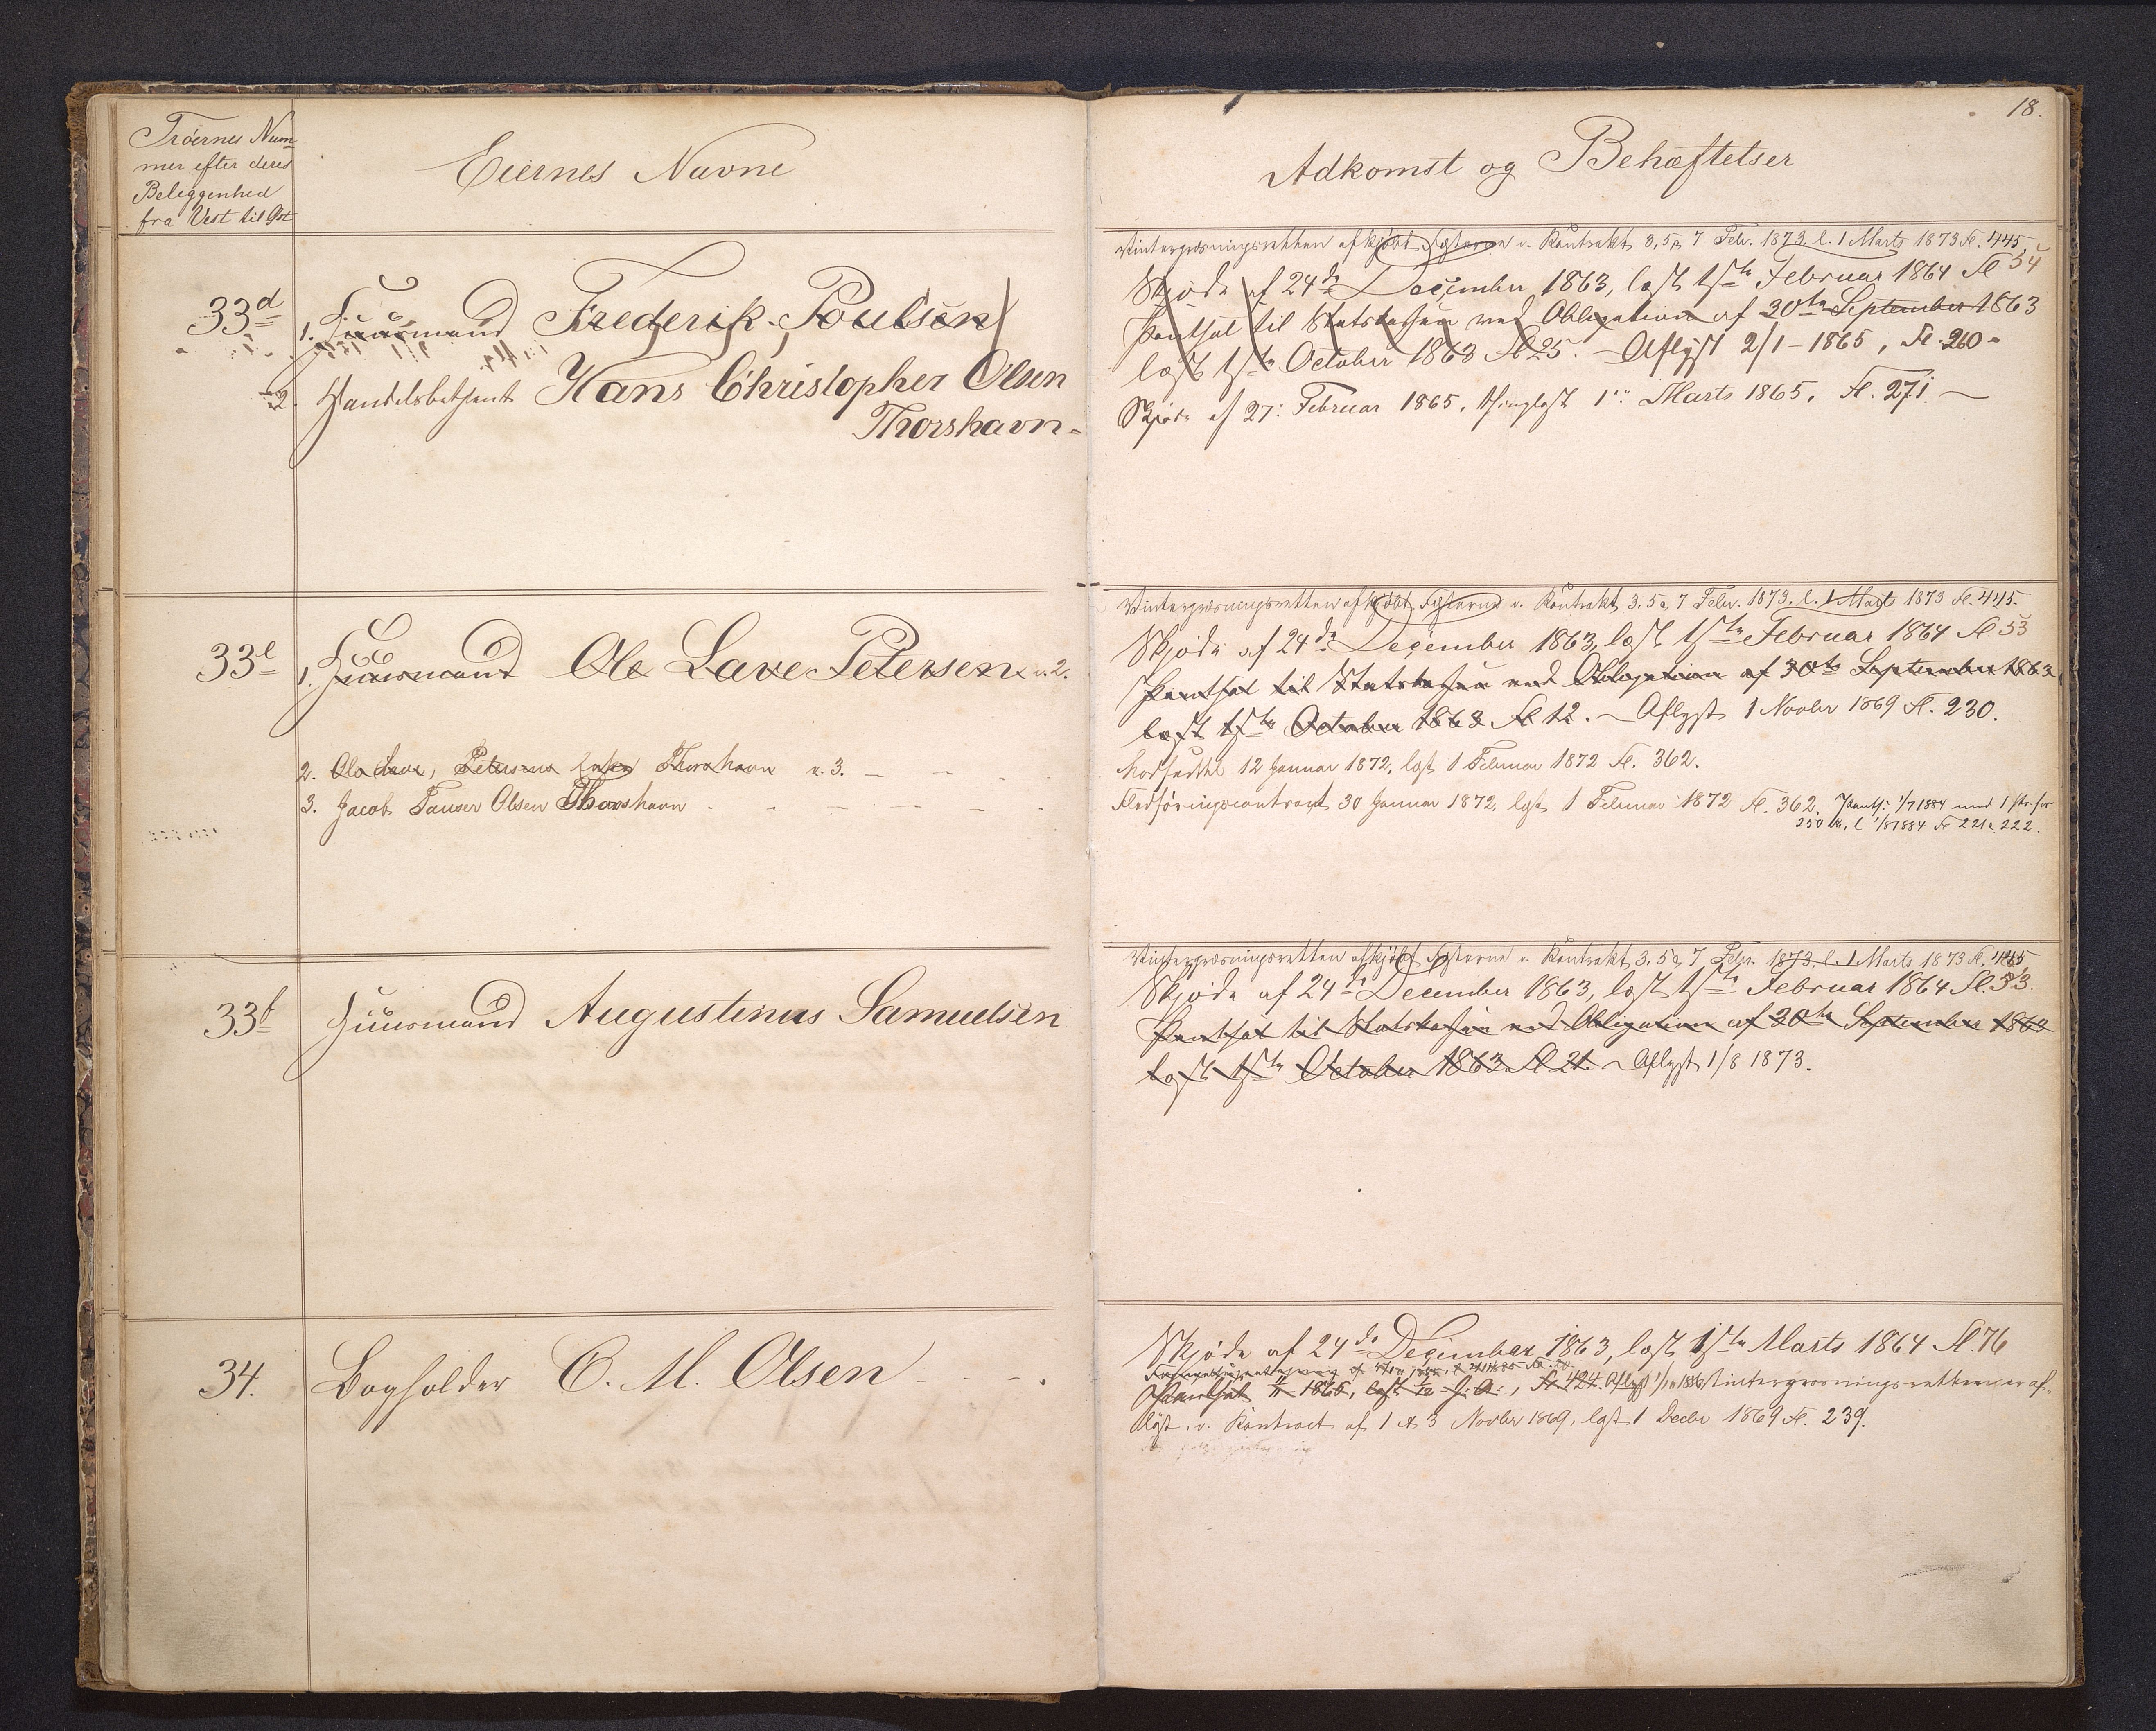 18.
Tröernes Num-
mer efter deres
Beleggenhed
fra Vest til Øst
Eiernes Navne
Adkomst og Behæftelser
33d
1. Huusmand Frederik Poulsen
2. Handelsbetjent Hans Christopher Olsen
Thorshavn
Vintergræsningsretten afkjøbt Fæsterne v. Kontrakt 3, 5 & 7 Febr. 1873, l. 1 Marts 1873 Fl. 445
Skjøde af 24de December 1863, læst 1ste Februar 1864 Fl 54
Pantsat til Statskassen med Obligation af 30te September 1863
læst 1ste October 1863 Fl 25. - Aflyst 2/1 - 1865, Fl. 260 -
Skjøde af 27: Februar 1865, thinglæst 1: Marts 1865, Fl. 271. -
33e
1. Huusmand Ole Lave Petersen v. 2.
2. Ole Lave Petersens Thorshavn v. 3. - -
3. Jacob Tauser Olsen Thorshavn
Vintergræsningsretten afkjøbt Fæsterne v. Kontrakt 3, 5 & 7 Febr. 1873, l. 1 Marts 1873 Fl. 445.
Skjøde af 24de December 1863, læst 1ste Februar 1864 Fl 53
Pantsat til Statskassen med Obligation af 30te September 1863
læst 1ste October 1863 Fl 12. - Aflyst 1 Novbr 1869 Fl. 230.
12 Januar 1872, læst 1 Februar 1872 Fl. 362.
Fledføringscontract 30 Januar 1872, læst 1 Februar 1872 Fl. 362. Pants: 1/7 1884 med 1 Pr. for
250 Kr. l 1/8 1884 Fl 221 & 222.
33f
Huusmand Augustinus Samuelsen
Vintergræsningsretten afkjøbt Fæsterne v. Kontrakt 3, 5 & 7 Febr. 1873, l. 1 Marts 1873 Fl. 445
Skjøde af 24de December 1863, læst 1ste Februar 1864 Fl. 53.
Pantsat til Statskassen med Obligation af 30te September 1863
læst 1ste October 1863 Fl 21. - Aflyst 1/8 1873.
34.
Bogholder C. M. Olsen
Skjøde af 24de December 1863, læst 1ste Marts 1864 Fl. 76
Pantsat 1865, læst Fl 424. Aflyst Vintergræsningsretten er af-
løst v. Kontract af 1 & 3 Novbr 1869, læst 1 Decbr 1869 Fl. 239.